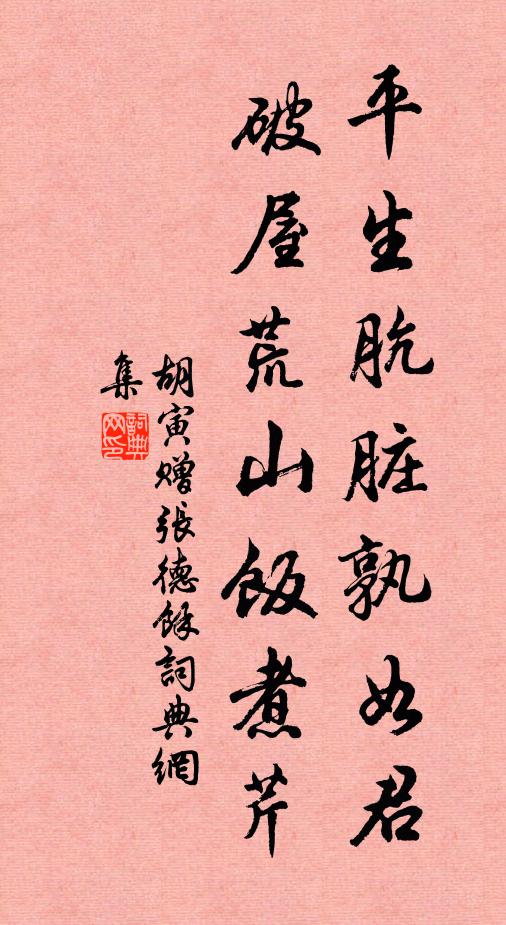 平生肮脏孰如君
破屋荒山饭煮芹
胡寅赠張德餘詞典網
集
詞典
网印